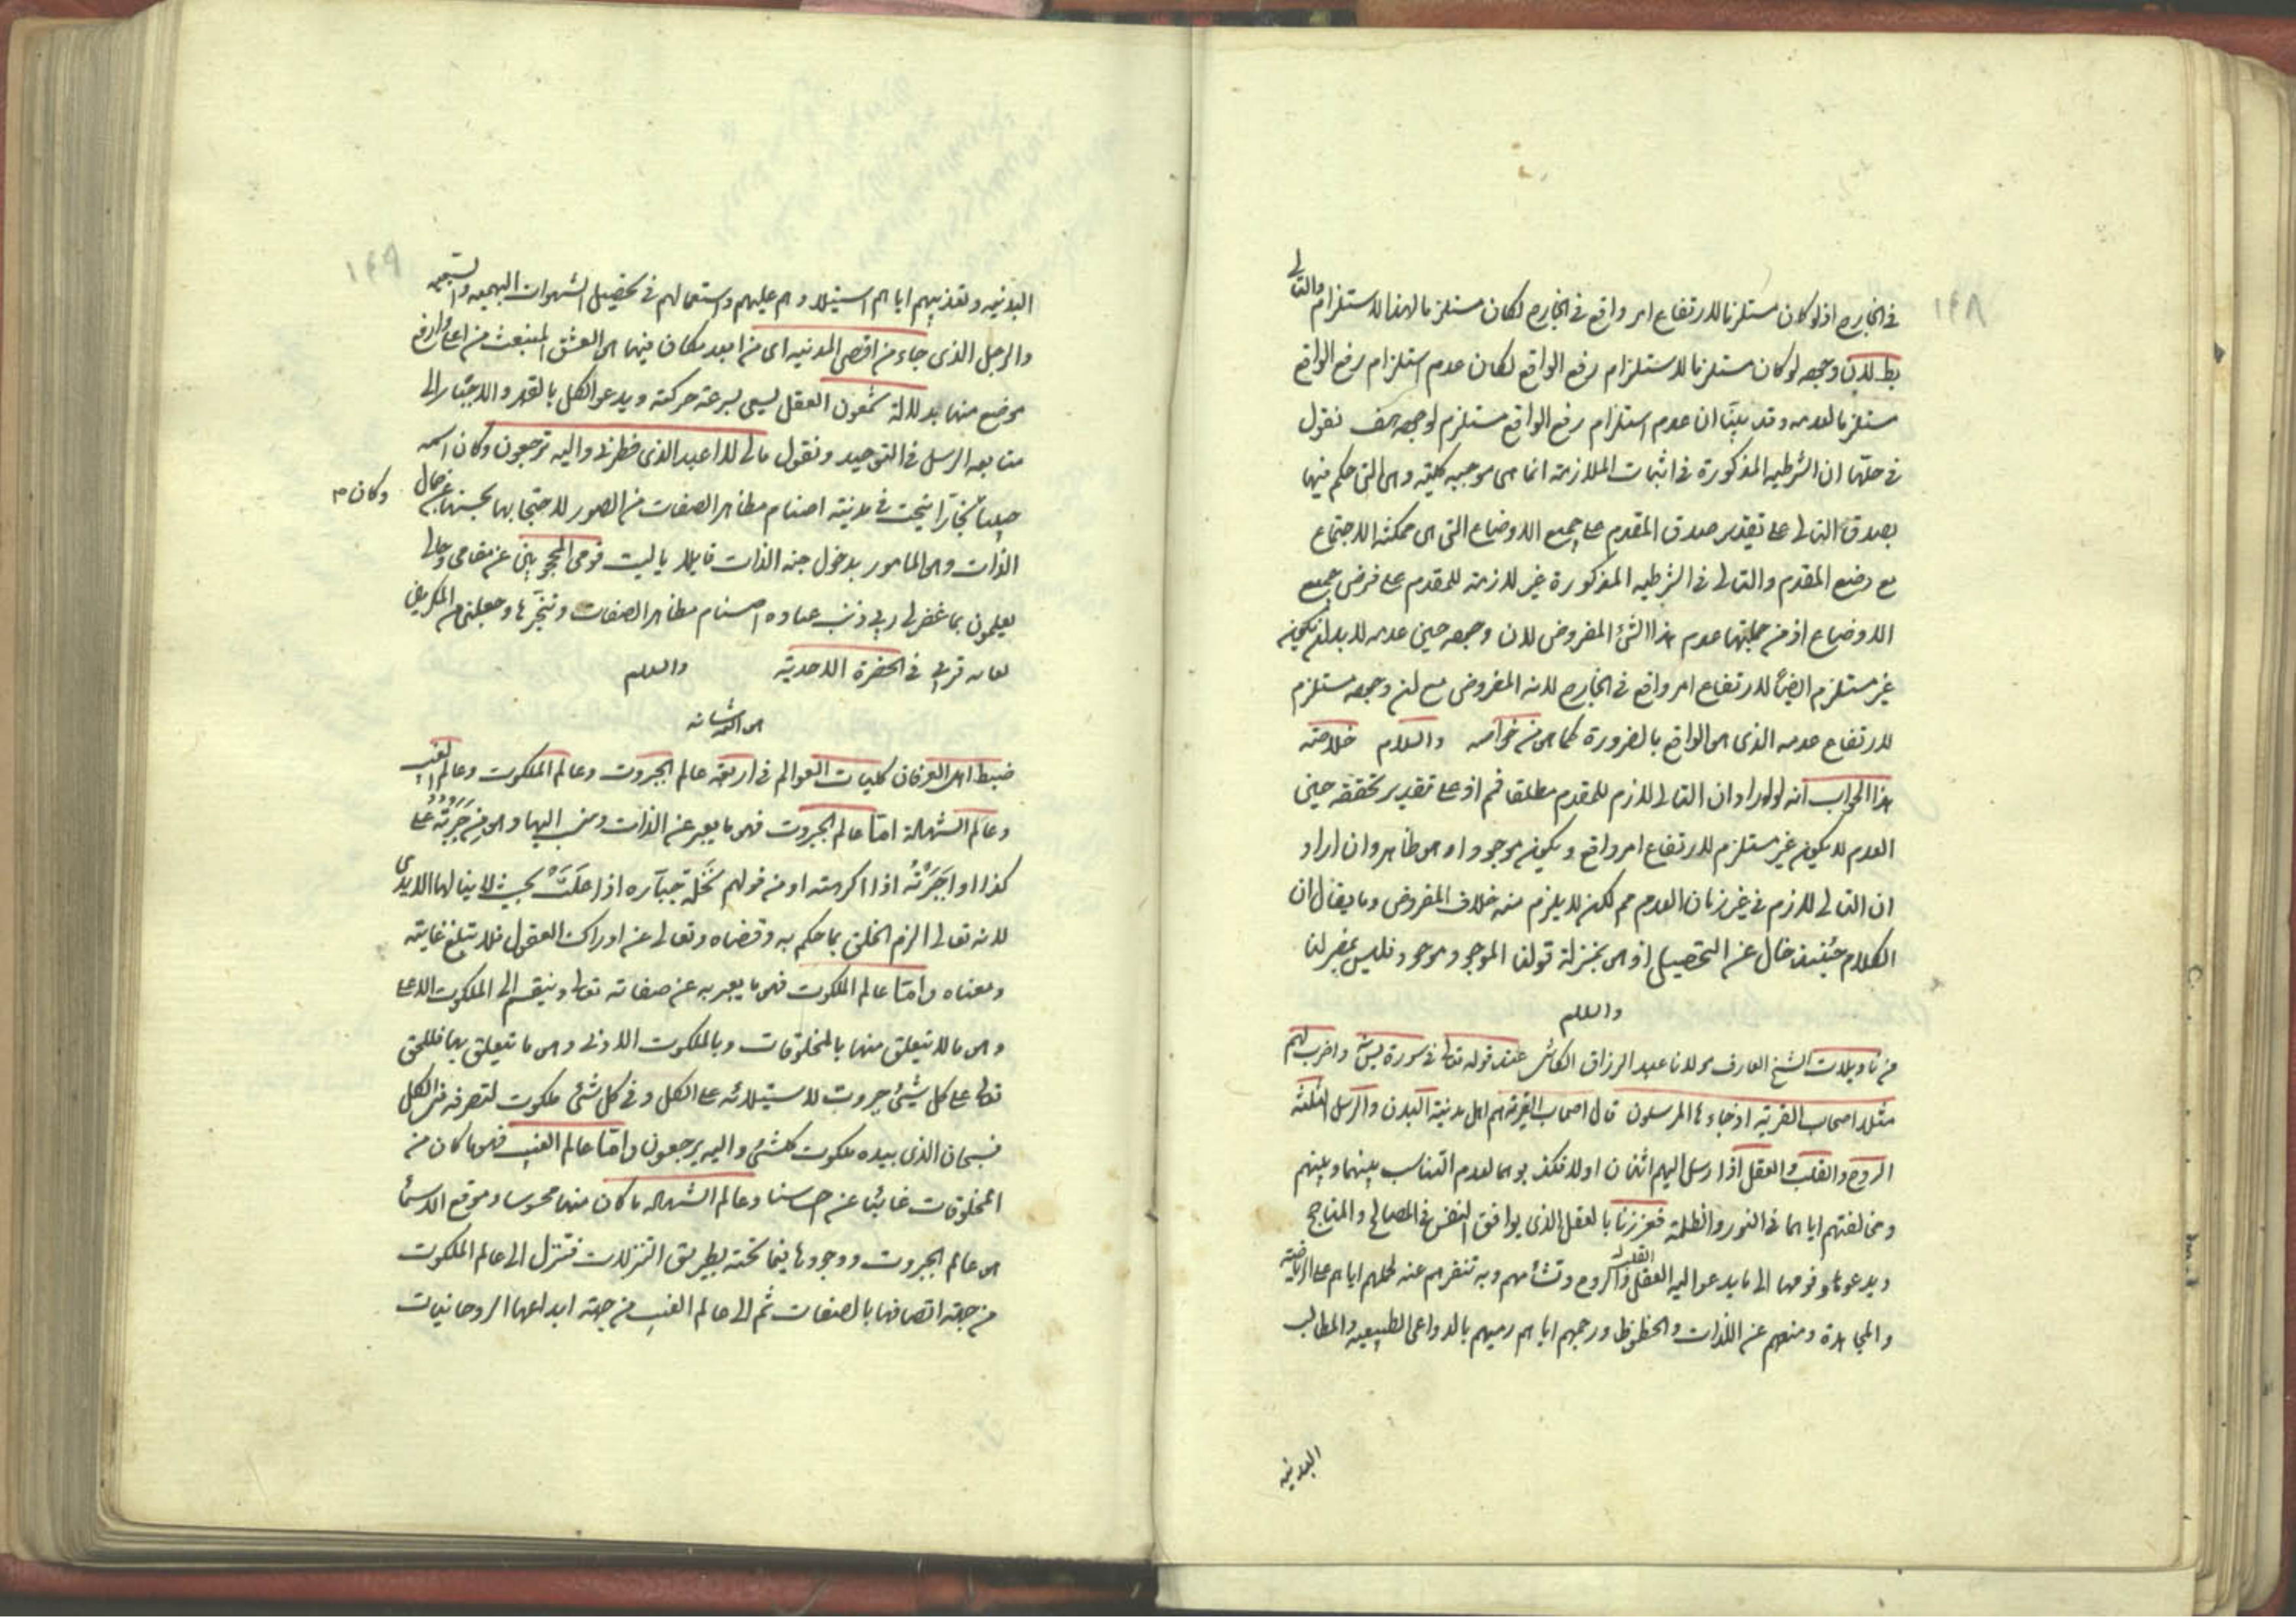 ١٤٨
في الخارج اذ لو كان مستلزما لارتفاع امر واقع في الخارج لكان مستلزما لهذا الاستلزام والتالي
بط لان وجوده لو كان مستلزما لاستلزام رفع الواقع لكان عدم استلزام رفع الواقع
مستلزما لعدمه وقد بينّا ان عدم استلزام رفع الواقع مستلزم لوجوده هف نقول
في حلّها ان الشرطيه المذكورة في اثبات الملازمة انما هى موجبه كلية وهى التى حكم فيها
بصدق التالى على تقدير صدق المقدم على جميع الاوضاع التى هى ممكنة الاجتماع
مع وضع المقدم والتالى في الشرطيه المذكورة غير لازمة للمقدم على فرض جميع
الاوضاع اذ من جملتها عدم هذا الشئ المفروض لان وجوده حين عدمه لابد ان يكون
غير مستلزم ايضاً لارتفاع امر واقع في الخارج لانه المفروض مع ان وجوده مستلزم
لارتفاع عدمه الذى هو الواقع بالضرورة كما هو من خواصه والسلام خلاصة
هذا الجواب انه لو اراد ان التالى لازم للمقدم مطلقا فمم اذ على تقدير تحققه حين
العدم لا يكون غير مستلزم لارتفاع امر واقع ويكون موجودا وهو ظاهر وان اراد
ان التالى لازم في غير زمان العدم مم لكن لا يلزم منه خلاف المفروض وما يقال ان
الكلام حينئذ خال عن التحصيل اذ هو بمنزلة قولنا الموجود موجود فليس بمضر لنا
والسلام
من تاويلات الشيخ العارف مولانا عبد الرزاق الكاشى عند قوله تعالى في سورة يس واضرب لهم
مثلا اصحاب القرية اذ جاءها المرسلون قال اصحاب القرية هم اهل مدينة البدن والرسل الثلثة
الروح والقلب والعقل اذ ارسل اليهم اثنان اولا فكذبوهما لعدم التناسب بينهما وبينهم
ومخالفتهم اياهما في النور والظلمة فعززنا بالعقل الذى يوافق النفس في المصالح والمناجح
ويدعوها وقومها الى ما يدعو اليه القلب والروح وتشأمهم وبه تنفرهم عنه لحملهم اياهم على الرياضة
والمجاهدة ومنعهم عن اللذات والحظوظ ورجمهم اياهم رميهم بالدواعى الطبيعيه والمطالب
البدنيه
١٤٩
البدنيه وتعذيبهم اياهم استيلاوهم عليهم واستعمالهم في تحصيل الشهوات البهيميه والسبعيه
والرجل الذى جاء من اقصى المدنيه اى من ابعد مكان فيها هو العشق المنبعث من اعلى وارفع
موضع منها بدلالة شمعون العقل يسعى بسرعة حركته ويدعو الكل بالقهر والاجبار الى
متابعه الرسل في التوحيد ويقول مالى لا اعبد الذى فطرنى واليه ترجعون وكان اسمه
حبيبا وكان نجّارا ينحت في مدينته اصنام مظاهر الصفات من الصور لاحتجابها بحسنها عن جمال
الذات وهو المامور بدخول جنه الذات قايلا يا ليت قومى المحجوبين عن مقامى وحالى
يعلمون بما غفر لى ربي ذنب عباده اصنام مظاهر الصفات ونجرها وجعلنى من المكرمين
لغايه قربي في الحضرة الاحدية والسلام
ضبط اهل العرفان كليات العوالم في اربعة عالم الجبروت وعالم الملكوت وعالم الغيب
وعالم الشهادة امّا عالم الجبروت فهو ما يعبر عن الذات وينسب اليها وهو من جَبَرْتُه على
كذا او اجبَرْتُه اذا اكرهته او من قولهم نَخْلة جبآره اذا عَلَتْ بحيث لا ينالها الايدى
لانه تعالى الزم الخلق بما حكم به وقضاه وتعالى عن ادراك العقول فلا تبلغ غايته
ومعناه وامّا عالم الملكوت فهو ما يعبر به عن صفاته تعالى وينقسم الى الملكوت الاعلى
وهو ما لا يتعلق منها بالمخلوقات وبالملكوت الادنى وهو ما يتعلق بها فللحق
تعالى على كل شئ جبروت لاستيلائه على الكل وفي كل شئ ملكوت لتصرفه في الكل
فسبحان الذى بيده ملكوت كلشئ واليه يرجعون وامّا عالم الغيب فهو ما كان من
المخلوقات غائبا عن احساسنا وعالم الشهاده ما كان منها محسوسا وموقع الاسماء
هو عالم الجبروت ووجودها فيما تحته بطريق التنزلات فتنزل الى عالم الملكوت
من جهة اتصافها بالصفات ثم الى عالم الغيب من جهة ابداعها الروحانيات